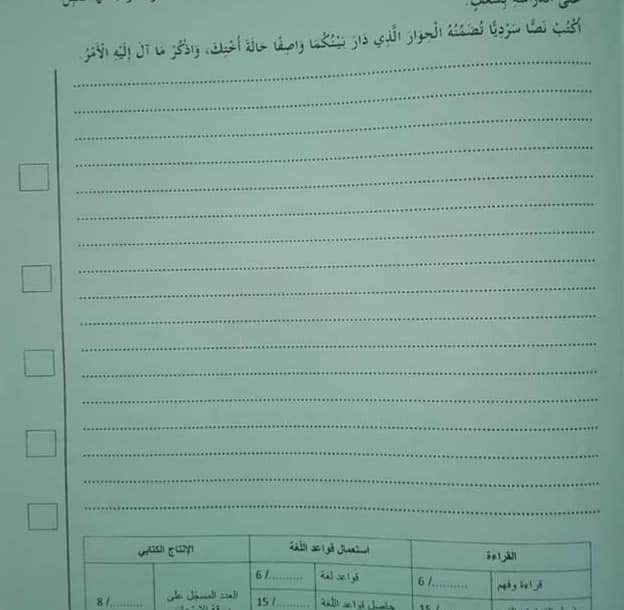 أُكْتُبْ نَصًّا سَرْدِيًّا تُضَمِّنُهُ الْحِوَارَ الَّذِي دَارَ بَيْنَكُمَا وَاصِفًا حَالَةَ أُخْتِكَ، وَاذْكُرْ مَا آلَ إِلَيْهِ الْأَمْرُ.
القراءة
استعمال قواعد اللغة
الإنتاج الكتابي
قراءة وفهم
6 /..........
قواعد لغة
6 /..........
العدد المسجل على
8 /..........
15 /
15 /..........